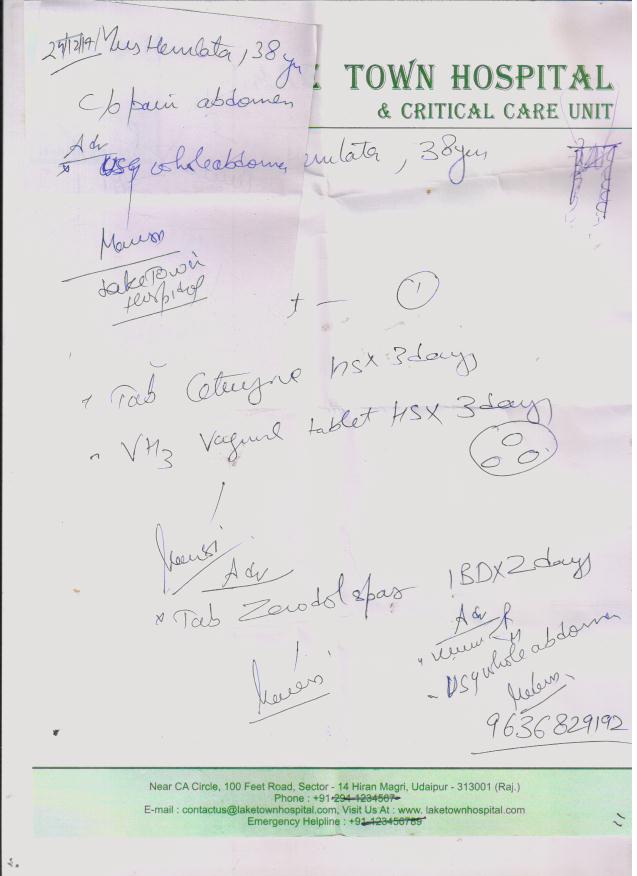 25/12/14 Mrs Hemlata, 38 yrs
c/o pain abdomen
Adv
USG whole abdomen
Lake Town
Hospital
TOWN HOSPITAL
& CRITICAL CARE UNIT
mlata, 38 yrs
+ — 1
Tab HS X 3 days
VH3 Vaginal tablet HS X 3 days
Adv
Tab Zerodol spas 1 BD X 2 days
Adv
USG whole abdomen
9636829192
Near CA Circle, 100 Feet Road, Sector - 14 Hiran Magri, Udaipur - 313001 (Raj.)
Phone : +91-294-1234567
E-mail : contactus@laketownhospital.com, Visit Us At : www. laketownhospital.com
Emergency Helpline : +91-123456789